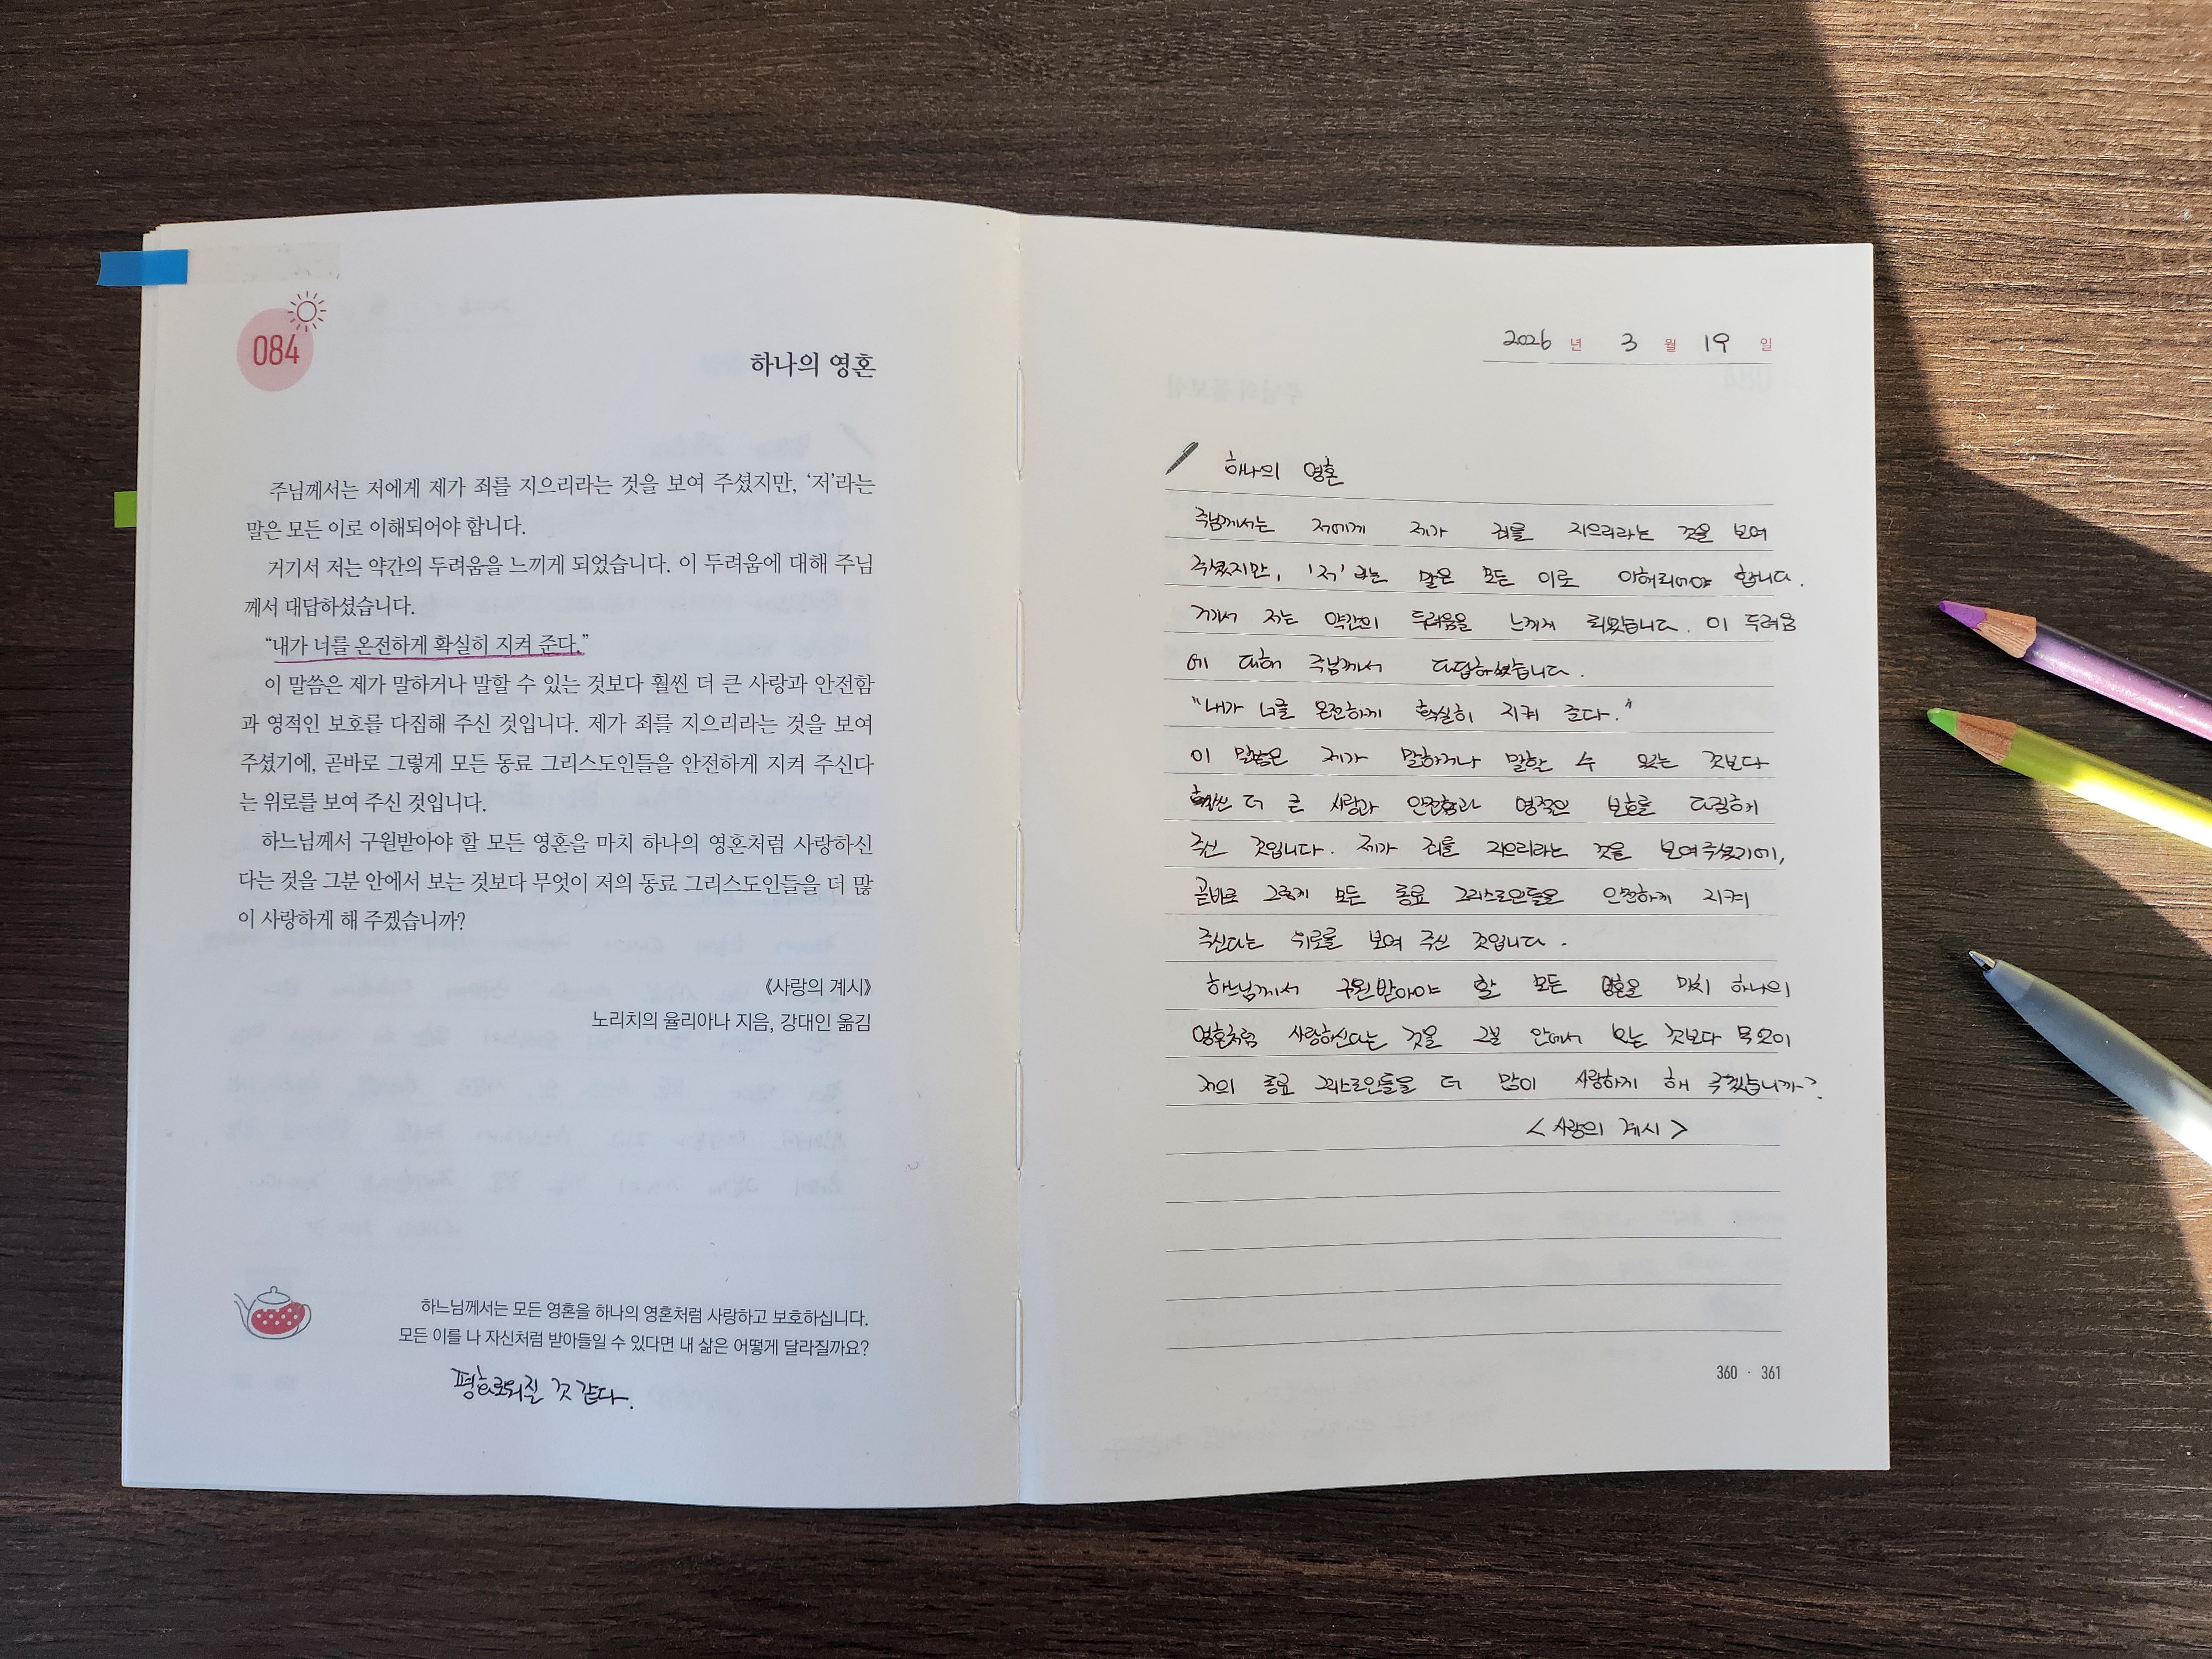 084
하나의 영혼
주님께서는 저에게 제가 죄를 지으리라는 것을 보여 주셨지만, ‘저’라는
말은 모든 이로 이해되어야 합니다.
거기서 저는 약간의 두려움을 느끼게 되었습니다. 이 두려움에 대해 주님
께서 대답하셨습니다.
“내가 너를 온전하게 확실히 지켜 준다.”
이 말씀은 제가 말하거나 말할 수 있는 것보다 훨씬 더 큰 사랑과 안전함
과 영적인 보호를 다짐해 주신 것입니다. 제가 죄를 지으리라는 것을 보여
주셨기에, 곧바로 그렇게 모든 동료 그리스도인들을 안전하게 지켜 주신다
는 위로를 보여 주신 것입니다.
하느님께서 구원받아야 할 모든 영혼을 마치 하나의 영혼처럼 사랑하신
다는 것을 그분 안에서 보는 것보다 무엇이 저의 동료 그리스도인들을 더 많
이 사랑하게 해 주겠습니까?
《사랑의 계시》
노리치의 율리아나 지음, 강대인 옮김
하느님께서는 모든 영혼을 하나의 영혼처럼 사랑하고 보호하십니다.
모든 이를 나 자신처럼 받아들일 수 있다면 내 삶은 어떻게 달라질까요?
평화로워질 것 같다.
2026 년 3 월 19 일
하나의 영혼
주님께서는 저에게 제가 죄를 지으리라는 것을 보여
주셨지만, '저'라는 말은 모든 이로 이해되어야 합니다.
거기서 저는 약간의 두려움을 느끼게 되었습니다. 이 두려움
에 대해 주님께서 대답하셨습니다.
"내가 너를 온전하게 확실히 지켜 준다."
이 말씀은 제가 말하거나 말할 수 있는 것보다
훨씬 더 큰 사랑과 안전함과 영적인 보호를 다짐하게
주신 것입니다. 제가 죄를 지으리라는 것을 보여주셨기에,
곧바로 그렇게 모든 동료 그리스도인들을 안전하게 지켜
주신다는 위로를 보여 주신 것입니다.
하느님께서 구원받아야 할 모든 영혼을 마치 하나의
영혼처럼 사랑하신다는 것을 그분 안에서 보는 것보다 무엇이
저의 동료 그리스도인들을 더 많이 사랑하게 해 주겠습니까?
<사랑의 계시>
360 · 361